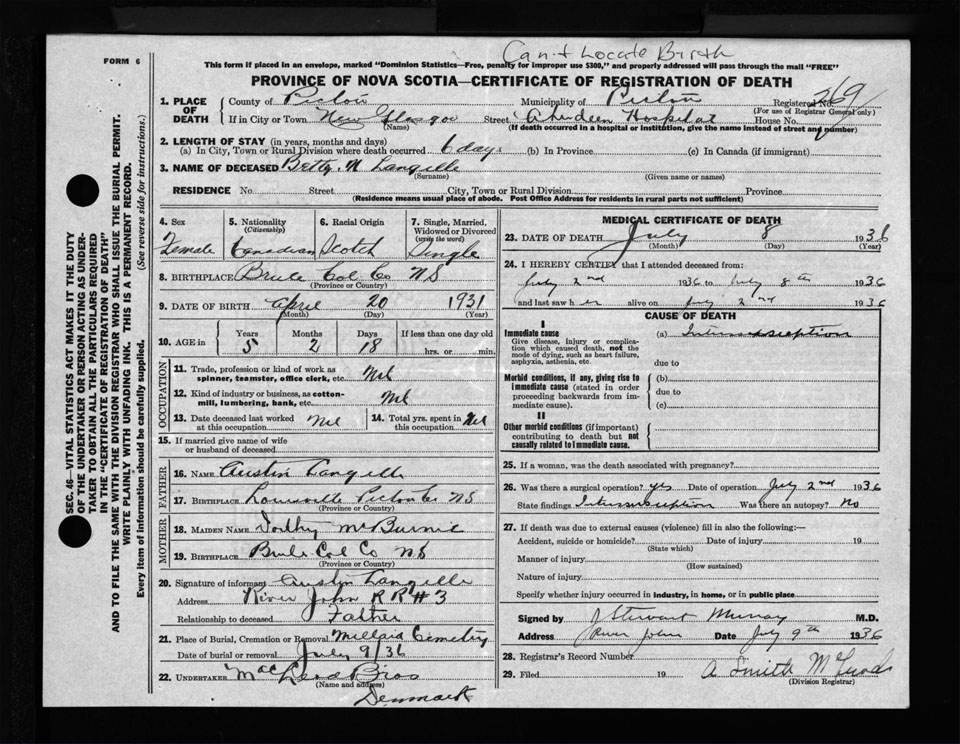 Can't Locate Birth
FORM 6
This form if placed in an envelope, marked "Dominion Statistics—Free, penalty for improper use $300," and properly addressed will pass through the mail "FREE"
PROVINCE OF NOVA SCOTIA—CERTIFICATE OF REGISTRATION OF DEATH
SEC. 46—VITAL STATISTICS ACT MAKES IT THE DUTY
OF THE UNDERTAKER OR PERSON ACTING AS UNDER-
TAKER TO OBTAIN ALL THE PARTICULARS REQUIRED
IN THE "CERTIFICATE OF REGISTRATION OF DEATH"
AND TO FILE THE SAME WITH THE DIVISION REGISTRAR WHO SHALL ISSUE THE BURIAL PERMIT.
WRITE PLAINLY WITH UNFADING INK. THIS IS A PERMANENT RECORD.
Every item of information should be carefully supplied. (See reverse side for instructions.)
1. PLACE OF DEATH County of Pictou Municipality of Pictou Registered No. 269
(For use of Registrar General only)
If in City or Town New Glasgow Street Aberdeen Hospital House No.
(Name) (If death occurred in a hospital or institution, give the name instead of street and number)
2. LENGTH OF STAY (in years, months and days)
(a) In City, Town or Rural Division where death occurred 6 days (b) In Province (c) In Canada (if immigrant)
3. NAME OF DECEASED Betty N Langille
(Surname) (Given name or names)
RESIDENCE No. Street City, Town or Rural Division Province
(Residence means usual place of abode. Post Office Address for residents in rural parts not sufficient)
4. Sex 5. Nationality (Citizenship) 6. Racial Origin 7. Single, Married, Widowed or Divorced (write the word)
Female Canadian Scotch Single
8. BIRTHPLACE Brule Col Co NS
(Province or Country)
9. DATE OF BIRTH April 20 1931
(Month) (Day) (Year)
10. AGE in Years Months Days If less than one day old
5 2 18 hrs. or min.
OCCUPATION
11. Trade, profession or kind of work as spinner, teamster, office clerk, etc. Nil
12. Kind of industry or business, as cotton-mill, lumbering, bank, etc. Nil
13. Date deceased last worked at this occupation Nil 14. Total yrs. spent in this occupation Nil
15. If married give name of wife or husband of deceased
FATHER
16. NAME Austin Langille
17. BIRTHPLACE Louisville Pictou Co NS
(Province or Country)
MOTHER
18. MAIDEN NAME Dorthy McBurnie
19. BIRTHPLACE Brule Col Co NS
(Province or Country)
20. Signature of informant Austin Langille
Address River John RR#3
Relationship to deceased Father
21. Place of Burial, Cremation or Removal Cemetery
Date of burial or removal July 9/36
22. UNDERTAKER MacLeod Bros
(Name and address)
Denmark
MEDICAL CERTIFICATE OF DEATH
23. DATE OF DEATH July 8 1936
(Month) (Day) (Year)
24. I HEREBY CERTIFY that I attended deceased from:
July 2nd 1936 to July 8th 1936
and last saw her alive on July 2nd 1936
CAUSE OF DEATH
I
Immediate cause (a) Intussusception
Give disease, injury or complica-
tion which caused death, not the
mode of dying, such as heart failure,
asphyxia, asthenia, etc. due to
Morbid conditions, if any, giving rise to (b)
immediate cause (stated in order due to
proceeding backwards from im-
mediate cause). (c)
II
Other morbid conditions (if important)
contributing to death but not
causally related to immediate cause.
25. If a woman, was the death associated with pregnancy?
26. Was there a surgical operation? yes Date of operation July 2nd 1936
State findings Intussusception Was there an autopsy? No
27. If death was due to external causes (violence) fill in also the following:—
Accident, suicide or homicide? Date of injury 19
(State which)
Manner of injury
(How sustained)
Nature of injury
Specify whether injury occurred in industry, in home, or in public place
Signed by J Stewart Murray M.D.
Address River John Date July 9th 1936
28. Registrar's Record Number
29. Filed 19 A Smith McLeod
(Division Registrar)